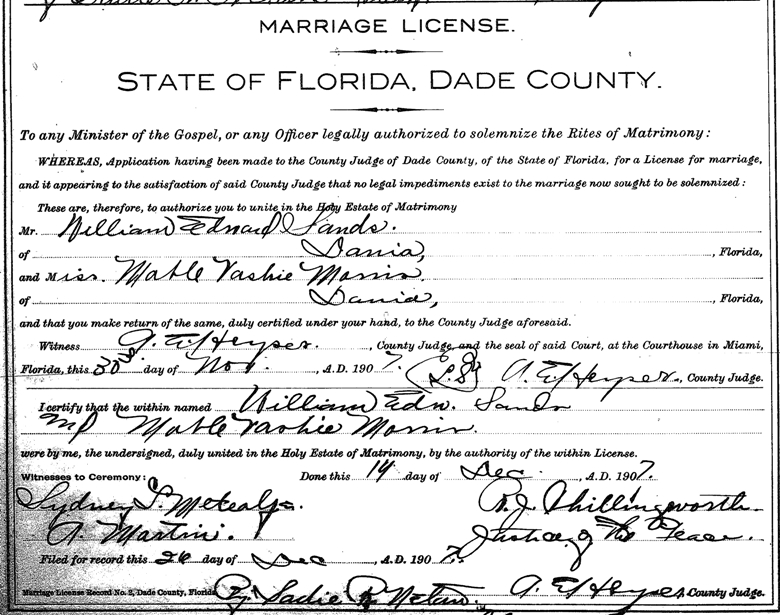 MARRIAGE LICENSE.
STATE OF FLORIDA, DADE COUNTY.
To any Minister of the Gospel, or any Officer legally authorized to solemnize the Rites of Matrimony:
WHEREAS, Application having been made to the County Judge of Dade County, of the State of Florida, for a License for marriage,
and it appearing to the satisfaction of said County Judge that no legal impediments exist to the marriage now sought to be solemnized:
These are, therefore, to authorize you to unite in the Holy Estate of Matrimony
Mr. William Edward Sands.
of Dania, , Florida,
and Miss. Matle Vashie Morris.
of Dania, , Florida,
and that you make return of the same, duly certified under your hand, to the County Judge aforesaid.
Witness A. E. Heyser. , County Judge, and the seal of said Court, at the Courthouse in Miami,
Florida, this 30th day of Nov. , A.D. 1907. (L.S.) A. E. Heyser., County Judge.
I certify that the within named William Edw. Sands
and Matle Vashie Morris.
were by me, the undersigned, duly united in the Holy Estate of Matrimony, by the authority of the within License.
Witnesses to Ceremony: Done this 14 day of Dec. , A.D. 1907.
Sydney S. Metcalf. B. J. Chillingworth.
A. Martini. Justice of the Peace.
Filed for record this 26 day of Dec , A.D. 1907.
Marriage License Record No. 2, Dade County, Florida By Sadie R. A. E. Heyser, County Judge.